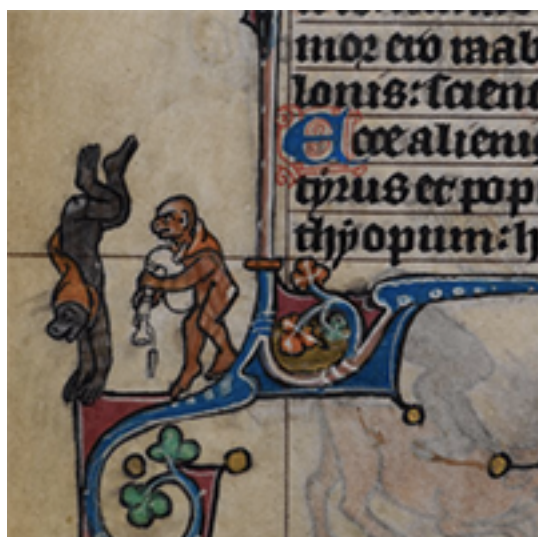 mor ero raab
lonis: scienc
Ecce alienig
tyrus et pop
thyopum: h